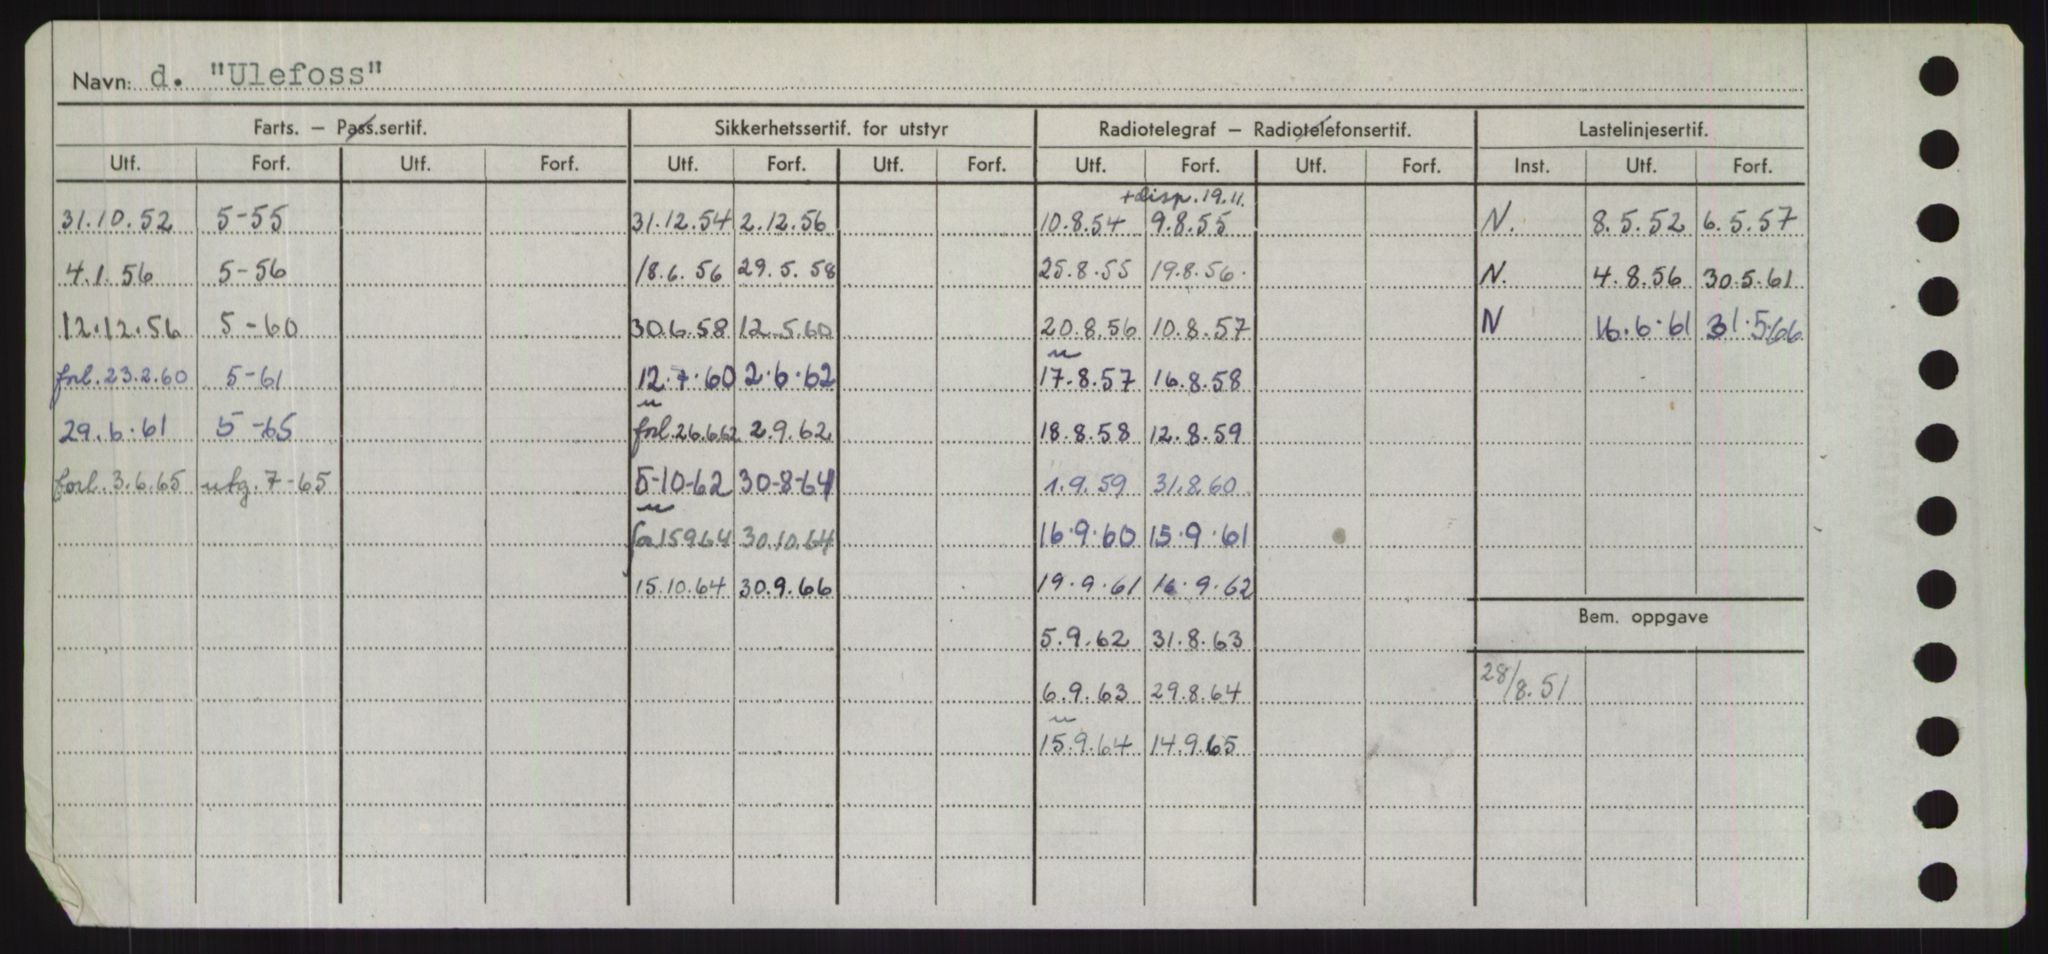 Navn: d. "Ulefoss"
Farts. – Pass.sertif. Sikkerhetssertif. for utstyr Radiotelegraf – Radiotelefonsertif. Lastelinjesertif.
Utf. Forf. Utf. Forf. Utf. Forf. Utf. Forf. Utf. Forf. Utf. Forf. Inst. Utf. Forf.
+disp. 19.11.
31.10.52 5-55 31.12.54 2.12.56 10.8.54 9.8.55 N. 8.5.52 6.5.57
4.1.56 5-56 18.6.56 29.5.58 25.8.55 19.8.56. N. 4.8.56 30.5.61
12.12.56 5-60 30.6.58 12.5.60 20.8.56 10.8.57 N 16.6.61 31.5.66
forl. 23.2.60 5-61 12.7.60 2.6.62 17.8.57 16.8.58
29.6.61 5-65 forl. 26.6.62 2.9.62 18.8.58 12.8.59
forl. 3.6.65 utg. 7-65 5-10-62 30-8-64 1.9.59 31.8.60
15964 30.10.64 16.9.60 15.9.61
15.10.64 30.9.66 19.9.61 16.9.62
Bem. oppgave
5.9.62 31.8.63
28/8.51
6.9.63 29.8.64
15.9.64 14.9.65